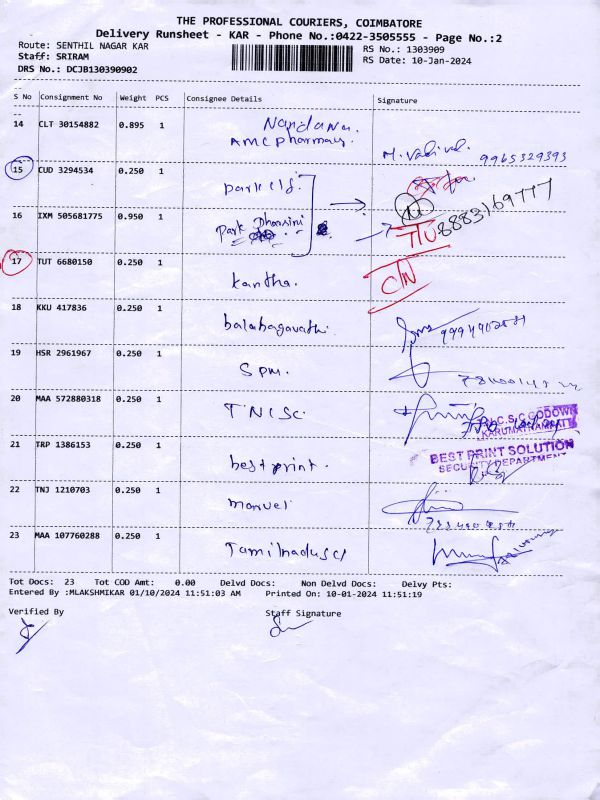 THE PROFESSIONAL COURIERS, COIMBATORE
Delivery Runsheet - KAR - Phone No.:0422-3505555 - Page No.:2
Route: SENTHIL NAGAR KAR
RS No.: 1303909
Staff: SRIRAM
RS Date: 10-Jan-2024
DRS No.: DCJB130390902
S No Consignment No Weight PCS Consignee Details Signature
14 CLT 30154882 0.895 1 Nandana.
AMC Pharmacy
M. Vadivel. 9965329393
15 CUD 3294534 0.250 1 Park clg.
16 IXM 505681775 0.950 1 Park Dharsini
8883169777
17 TUT 6680150 0.250 1 Kantha. C/N
18 KKU 417836 0.250 1 balabagavathi.
19 HSR 2961967 0.250 1 SPM.
20 MAA 572880318 0.250 1 TNCSC.
C.S.C GODOWN
21 TRP 1386153 0.250 1 best print.
BEST PRINT SOLUTION
SECURITY DEPARTMENT
22 TNJ 1210703 0.250 1 manuel
23 MAA 107760288 0.250 1 Tamilnadu sci
Tot Docs: 23 Tot COD Amt: 0.00 Delvd Docs: Non Delvd Docs: Delvy Pts:
Entered By :MLAKSHMIKAR 01/10/2024 11:51:03 AM Printed On: 10-01-2024 11:51:19
Verified By Staff Signature